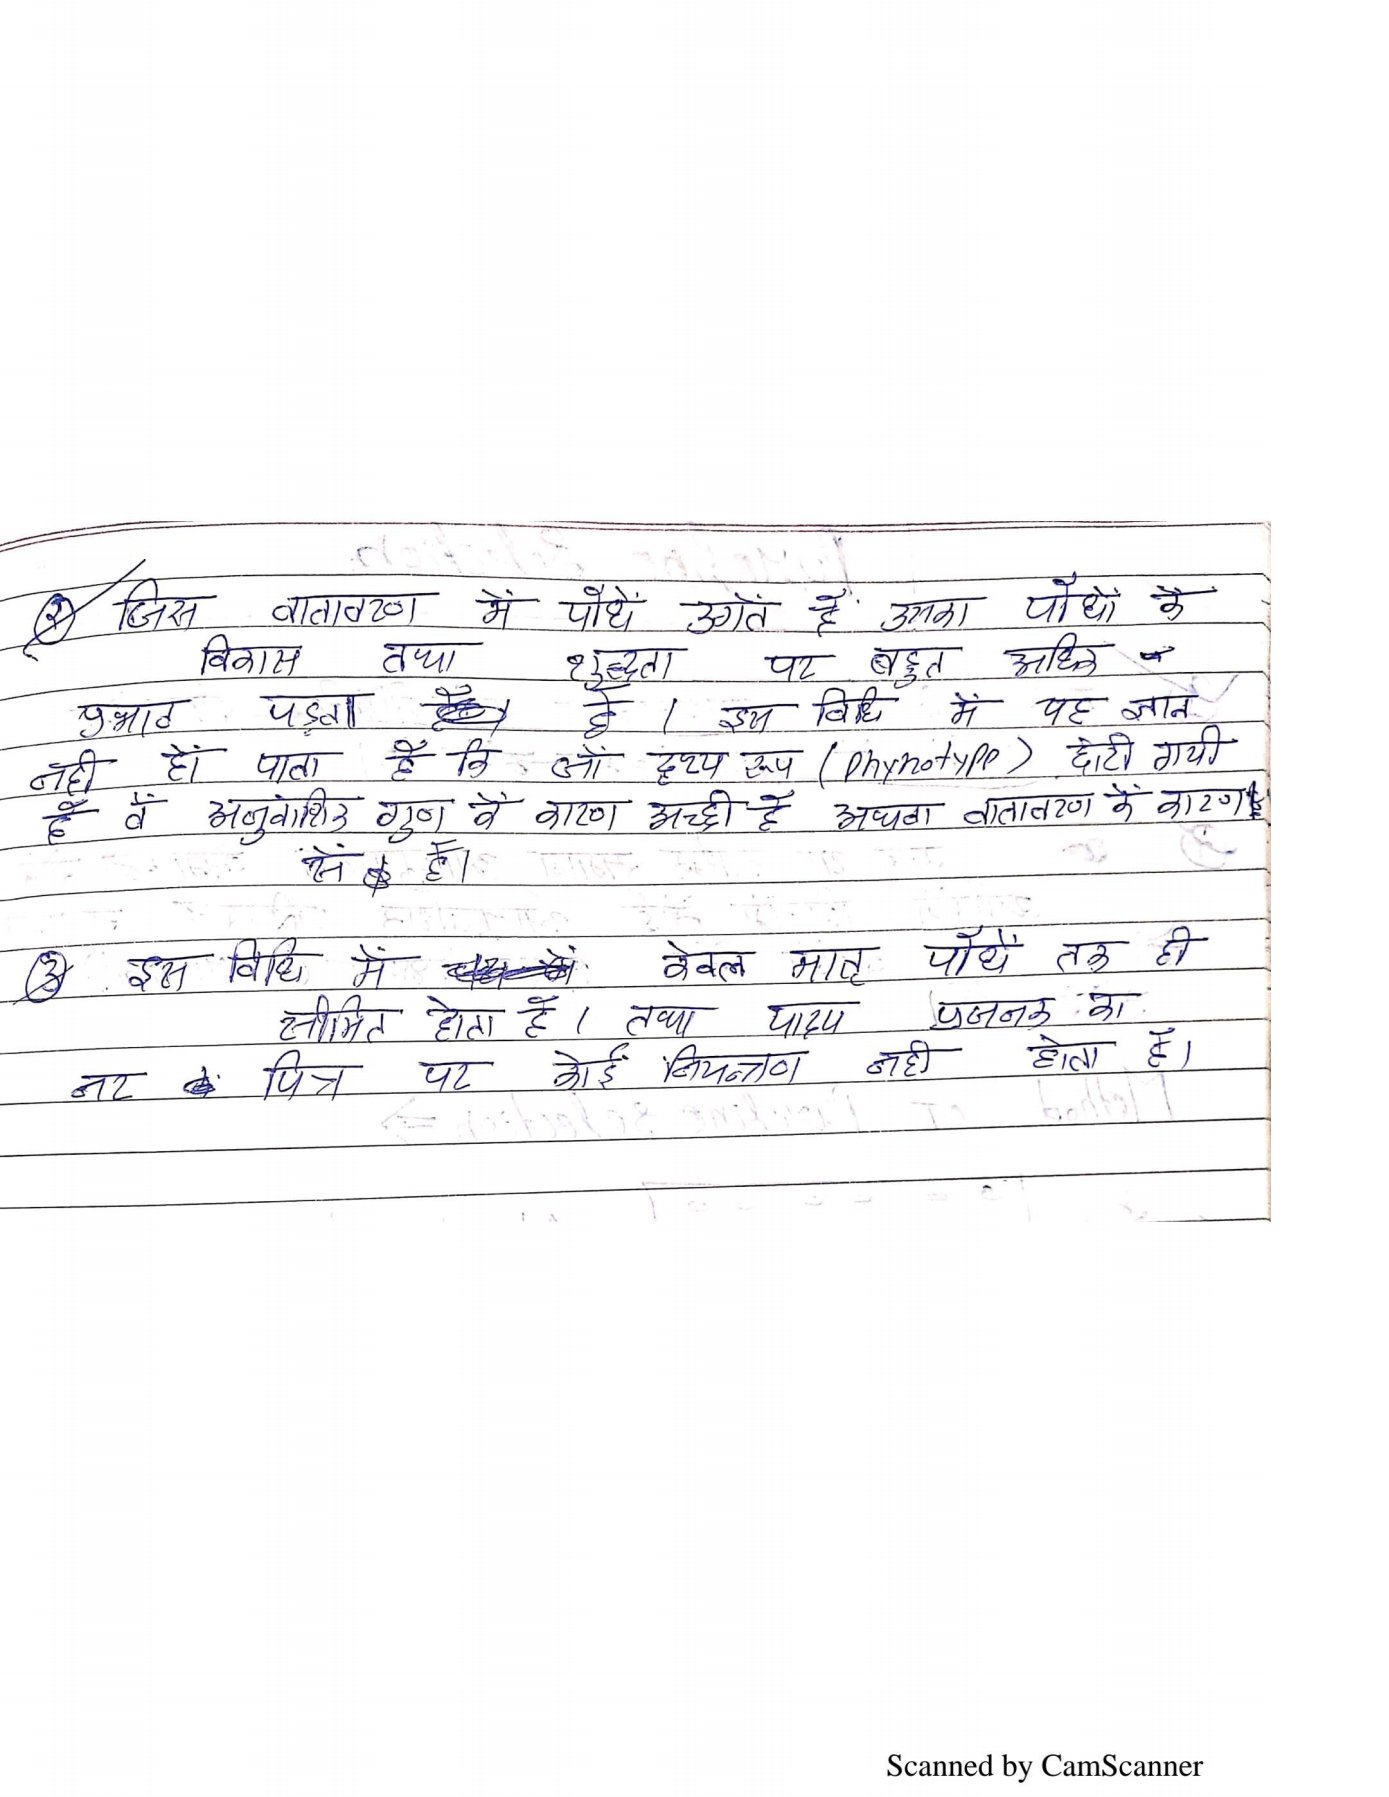 ② जिस वातावरण में पौधें उगते हैं उसका पौधों के
विकास तथा शुद्धता पर बहुत अधिक
प्रभाव पड़ता है । इस विधि में यह ज्ञात
नही हों पाता हैं कि जों दृश्य रूप (Phynotype) छोटी गयी
हैं वें अनुवांशिक गुण कें कारण अच्छी हैं अथवा वातावरण कें कारण
सें हैं।
③ इस विधि में केवल मातृ पौधें तक ही
सीमित होता हैं । तथा पादप प्रजनक का
नर पित्र पर कोई नियन्त्रण नही होता हैं।
Scanned by CamScanner